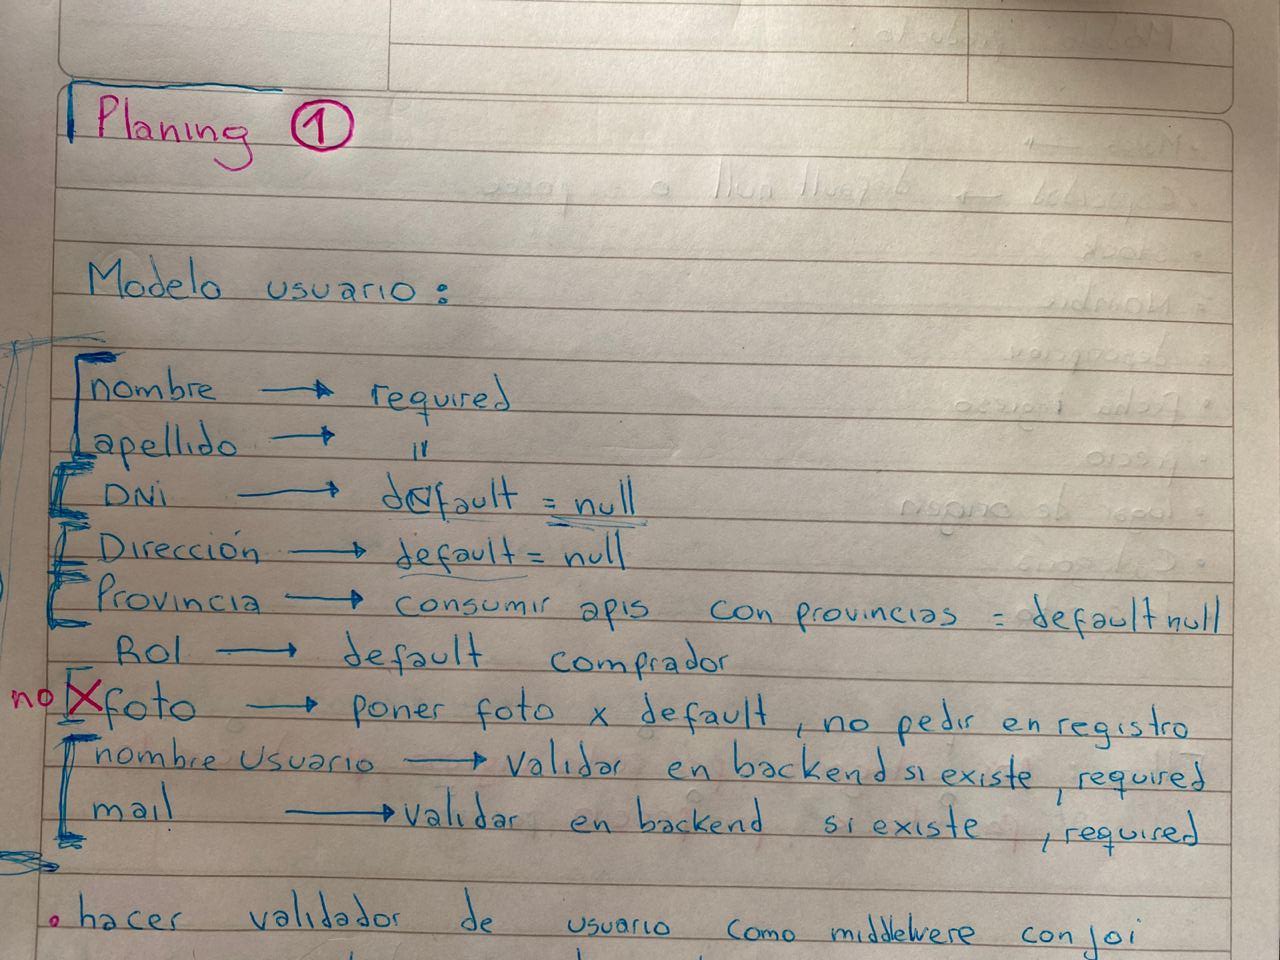 Planing ①
Modelo usuario:
nombre → required
apellido → "
DNi → default = null
Dirección → default = null
Provincia → consumir apis con provincias = default null
Rol → default comprador
no X foto → poner foto x default, no pedir en registro
nombre Usuario → validar en backend si existe, required
mail → validar en backend si existe, required
• hacer validador de usuario como middlewere con joi